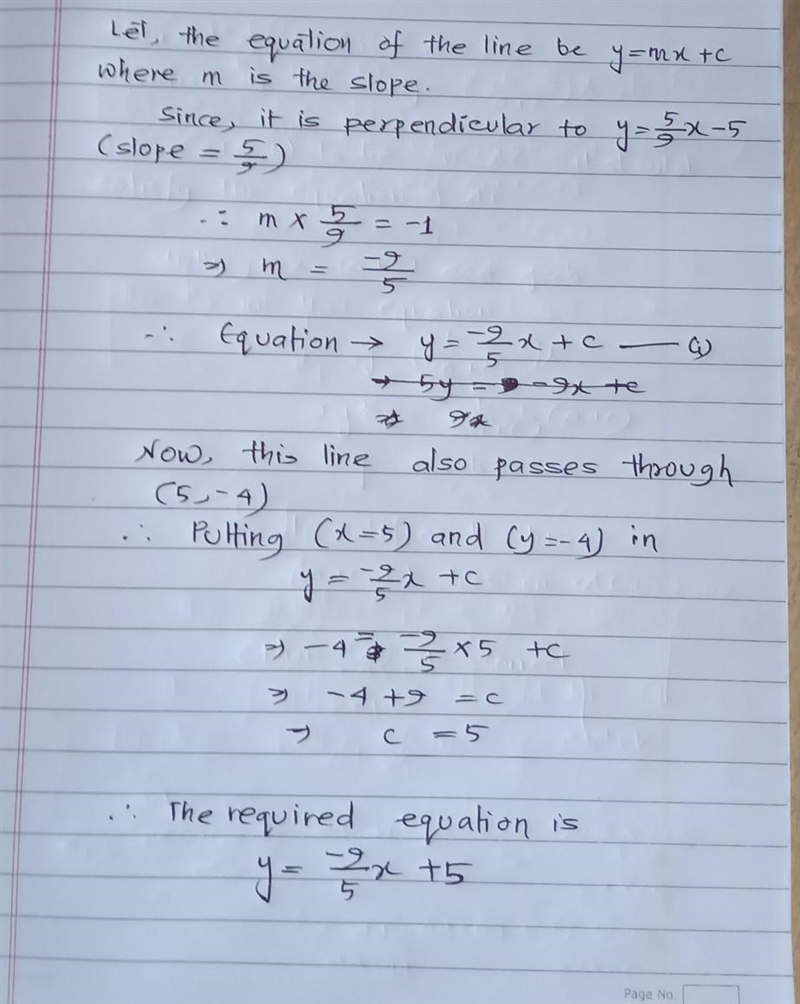 Let, the equation of the line be y=mx+c
where m is the slope.
Since, it is perpendicular to y=5/9x-5
(slope = 5/9)
∴ m × 5/9 = -1
⇒ m = -9/5
∴ Equation → y = -9/5x + c — (i)
→ 5y = -9x + c
⇒ 9x
Now, this line also passes through
(5,-4)
∴ Putting (x=5) and (y=-4) in
y = -9/5x + c
⇒ -4 = -9/5 × 5 + c
⇒ -4 + 9 = c
⇒ c = 5
∴ The required equation is
y = -9/5x + 5
Page No.